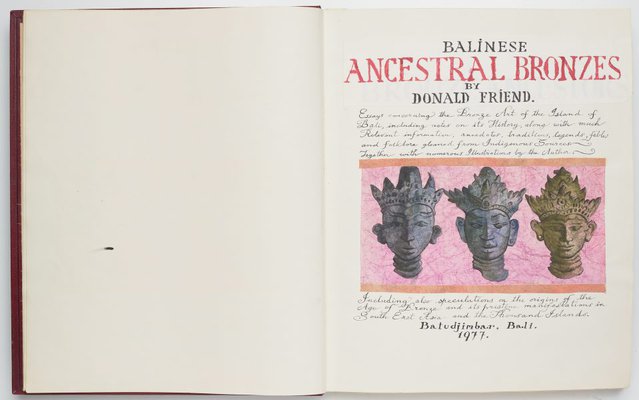 BALINESE
ANCESTRAL BRONZES
BY
DONALD FRIEND.
Essays concerning the Bronze Art of the Island of
Bali, including notes on its History, along with much
Relevant information, anecdotes, traditions, legends, fable
and folklore gleaned from Indigenous Sources
Together with numerous Illustrations by the Author
Including also speculations on the origins of the
Age of Bronze and its pristine manifestations in
South East Asia and the Thousand Islands.
Batudjimbar, Bali.
1977.